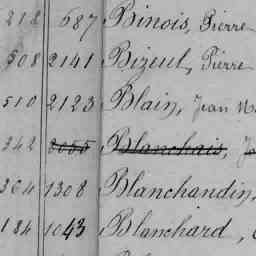 218 687 Binois, Pierre
508 2141 Bizeul, Pierre
510 2123 Blain, Jean M
342 3055 Blanchais, Je
364 1308 Blanchandin,
184 1043 Blanchard,